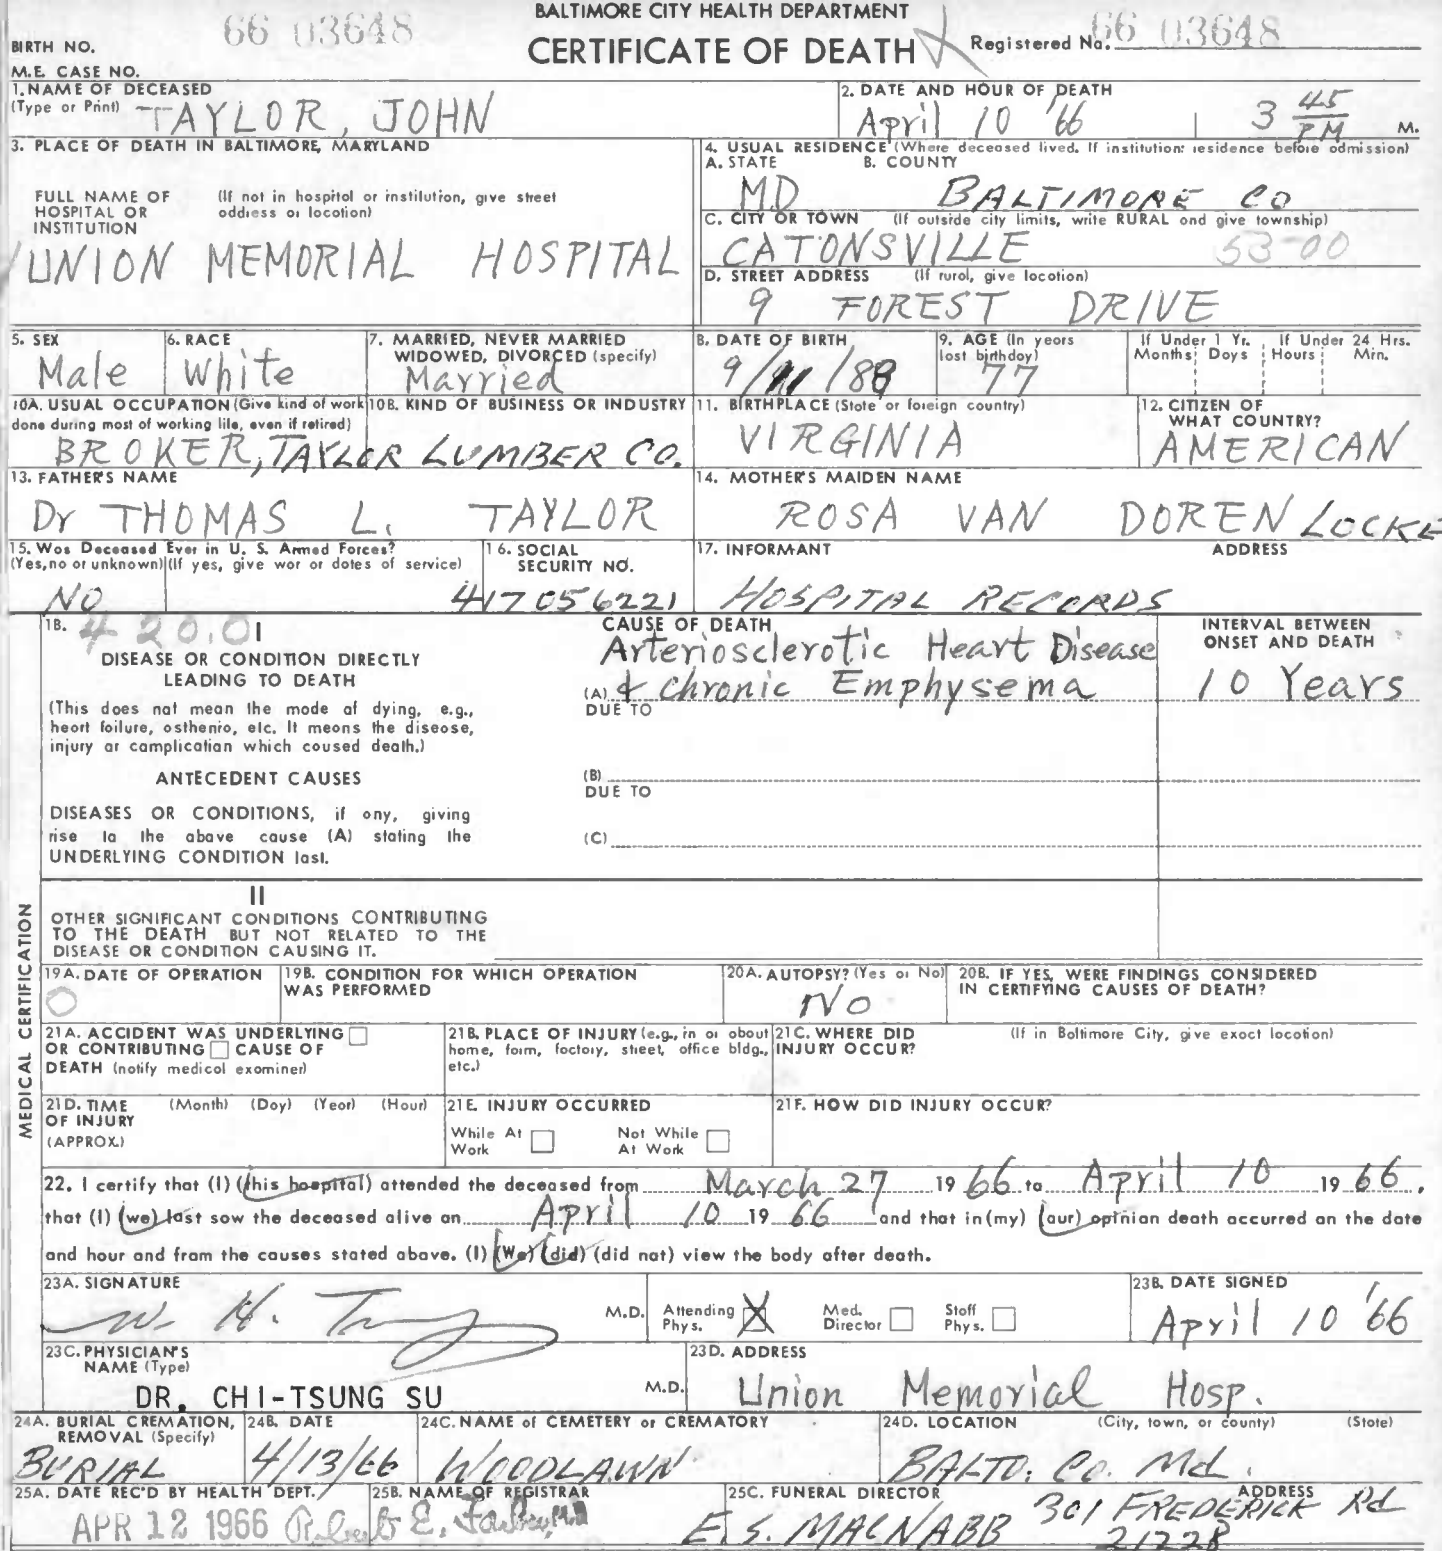 BALTIMORE CITY HEALTH DEPARTMENT
66 03648
66 03648
BIRTH NO.
CERTIFICATE OF DEATH
Registered No.
M.E. CASE NO.
1. NAME OF DECEASED
(Type or Print)
TAYLOR, JOHN
2. DATE AND HOUR OF DEATH
April 10 '66 3 45 PM M.
3. PLACE OF DEATH IN BALTIMORE, MARYLAND
FULL NAME OF HOSPITAL OR INSTITUTION
(If not in hospital or institution, give street address or location)
UNION MEMORIAL HOSPITAL
4. USUAL RESIDENCE (Where deceased lived. If institution: residence before admission)
A. STATE B. COUNTY
MD BALTIMORE CO
C. CITY OR TOWN (If outside city limits, write RURAL and give township)
CATONSVILLE 53-00
D. STREET ADDRESS (If rural, give location)
9 FOREST DRIVE
5. SEX
Male
6. RACE
White
7. MARRIED, NEVER MARRIED
WIDOWED, DIVORCED (specify)
Married
8. DATE OF BIRTH
9/11/88
9. AGE (In years
last birthday)
77
If Under 1 Yr.
Months Days
If Under 24 Hrs.
Hours Min.
10A. USUAL OCCUPATION (Give kind of work
done during most of working life, even if retired)
10B. KIND OF BUSINESS OR INDUSTRY
BROKER, TAYLOR LUMBER CO.
11. BIRTHPLACE (State or foreign country)
VIRGINIA
12. CITIZEN OF
WHAT COUNTRY?
AMERICAN
13. FATHER'S NAME
Dr THOMAS L. TAYLOR
14. MOTHER'S MAIDEN NAME
ROSA VAN DOREN LOCKE
15. Was Deceased Ever in U. S. Armed Forces?
(Yes, no or unknown) (If yes, give war or dates of service)
NO
16. SOCIAL
SECURITY NO.
417056221
17. INFORMANT ADDRESS
HOSPITAL RECORDS
MEDICAL CERTIFICATION
18. 420.0 I
DISEASE OR CONDITION DIRECTLY
LEADING TO DEATH
(This does not mean the mode of dying, e.g.,
heart failure, asthenia, etc. It means the disease,
injury or complication which caused death.)
ANTECEDENT CAUSES
DISEASES OR CONDITIONS, if any, giving
rise to the above cause (A) stating the
UNDERLYING CONDITION last.
CAUSE OF DEATH
Arteriosclerotic Heart Disease
(A) & Chronic Emphysema
DUE TO
(B)
DUE TO
(C)
INTERVAL BETWEEN
ONSET AND DEATH
10 Years
II
OTHER SIGNIFICANT CONDITIONS CONTRIBUTING
TO THE DEATH BUT NOT RELATED TO THE
DISEASE OR CONDITION CAUSING IT.
19A. DATE OF OPERATION
0
19B. CONDITION FOR WHICH OPERATION
WAS PERFORMED
20A. AUTOPSY? (Yes or No)
No
20B. IF YES, WERE FINDINGS CONSIDERED
IN CERTIFYING CAUSES OF DEATH?
21A. ACCIDENT WAS UNDERLYING
OR CONTRIBUTING CAUSE OF
DEATH (notify medical examiner)
21B. PLACE OF INJURY (e.g., in or about
home, farm, factory, street, office bldg.,
etc.)
21C. WHERE DID
INJURY OCCUR?
(If in Baltimore City, give exact location)
21D. TIME
OF INJURY
(APPROX.)
(Month) (Day) (Year) (Hour)
21E. INJURY OCCURRED
While At
Work
Not While
At Work
21F. HOW DID INJURY OCCUR?
22. I certify that (I) (this hospital) attended the deceased from March 27 19 66 to April 10 19 66,
that (I) (we) last saw the deceased alive on April 10 19 66 and that in (my) (our) opinion death occurred on the date
and hour and from the causes stated above. (I) (We) (did) (did not) view the body after death.
23A. SIGNATURE
M.D.
Attending
Phys.
X
Med.
Director
Staff
Phys.
23B. DATE SIGNED
April 10 '66
23C. PHYSICIAN'S
NAME (Type)
DR. CHI-TSUNG SU M.D.
23D. ADDRESS
Union Memorial Hosp.
24A. BURIAL CREMATION,
REMOVAL (Specify)
BURIAL
24B. DATE
4/13/66
24C. NAME of CEMETERY or CREMATORY
WOODLAWN
24D. LOCATION (City, town, or county) (State)
BALTO. Co. Md.
25A. DATE REC'D BY HEALTH DEPT.
APR 12 1966
25B. NAME OF REGISTRAR
Robert E. Farber, M.D.
25C. FUNERAL DIRECTOR ADDRESS
E. S. MACNABB 301 FREDERICK Rd
21228